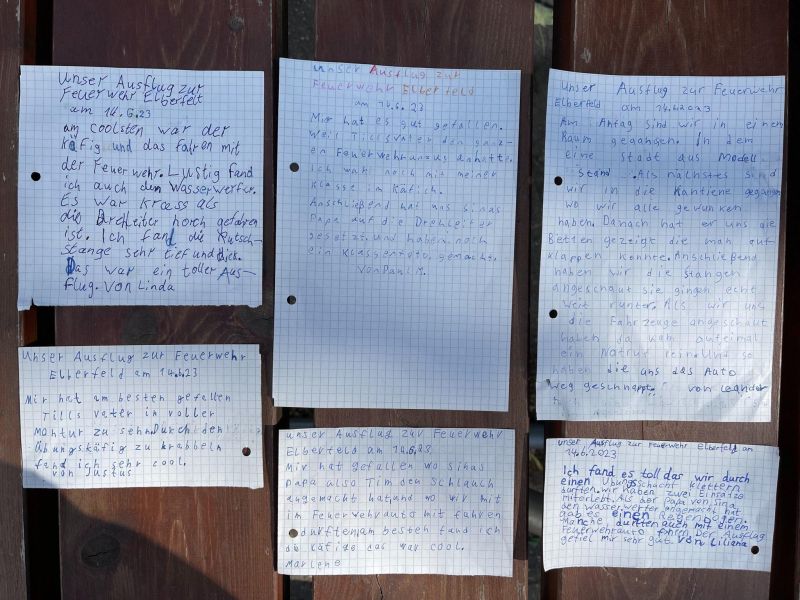 Unser Ausflug zur
Feuerwehr Elberfelt
am 14.6.23
am coolsten war der
Käfig und das fahren mit
der Feuerwehr. Lustig fand
ich auch den Wasserwerfer.
Es war krass als
die Drehleiter horch gefahren
ist. Ich fand die Rutsch-
stange sehr tief und dick.
Das war ein toller Aus-
flug. Von Linda
Unser Ausflug zur Feuerwehr
Elberfeld am 14.6.23
Mir hat am besten gefallen
Tills vater in voller
Montur zu sehn. Durch den
Übungskäfig zu krabbeln
fand ich sehr cool.
von Justus
unser Ausflug zur
Feuerwehr Elberfeld
am 14.6.23
Mir hat es gut gefallen.
Weil Tillsvater den ganz-
en Feuerwehranzug anhatte.
Ich war noch mit meiner
Klasse im Käfich.
Anschließend hat uns Sinas
Papa auf die Drehleiter
gesetzt. und haben noch
ein Klassenfoto gemacht.
Von Paul M.
unser Ausflug zur Feuerwehr
Elberfeld am 14.6.23
Mir hat gefallen wo Sinas
Papa also Tim den Schlauch
angemacht hat und wo wir mit
im Feuerwehrauto mit fahren
durften am besten fand ich
die käfige das war cool.
Marlene
Unser Ausflug zur Feuerwehr
Elberfeld am 14.6.2023
Am Anfag sind wir in einem
Raum gegangen. In dem
eine stadt aus Modell
stand. Als nächstes sind
wir in die Kantiene gegangen
wo wir alle gewunken
haben. Danach hat er uns die
Betten gezeigt die man auf-
klappen konnte. Anschließend
haben wir die Stangen
angeschaut sie gingen echt
weit runter. Als wir uns
die Fahrzeuge angeschaut
haben da kam aufeimal
ein Notruf rein. Und so
haben die uns das Auto
weg geschnappt. von Leander
unser Ausflug zur Feuerwehr Elberfeld am
14.6.2023
Ich fand es toll das wir durch
einen Übungsschacht klettern
durften. wir haben zwei Einsätze
miterlebt. Als der Papa von Sina
den wasserwerfer angemacht hat
gab es einen Regenbogen.
Manche durften auch mit einem
Feuerwehrauto fahren. Der Ausflug
gefiel mir sehr gut von Liliana